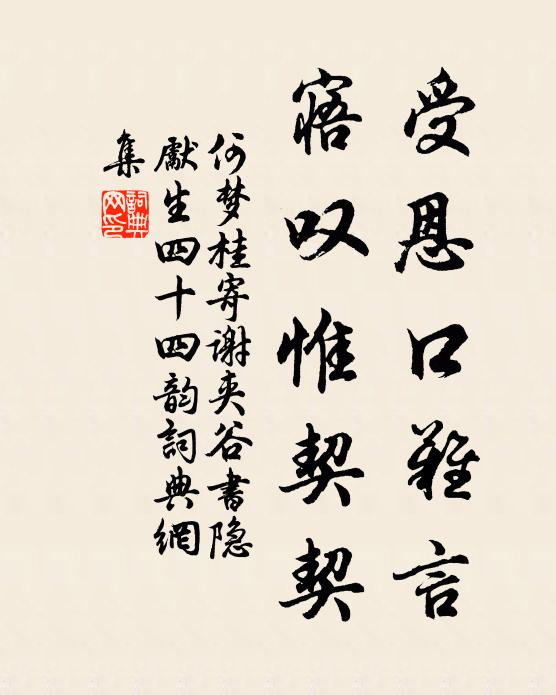 受恩口难言
寤叹惟契契
何梦桂寄谢夹谷书隐
献生四十四韵詞典網
集
詞典网印